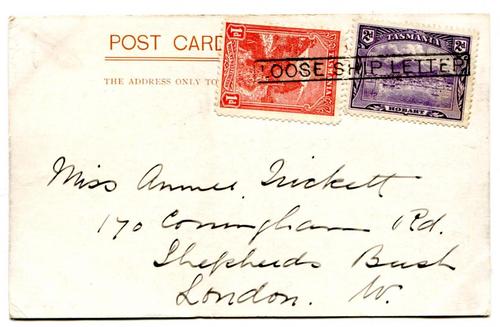 POST CARD
THE ADDRESS ONLY TO
1d TASMANIA 1d
2d TASMANIA 2d
HOBART
LOOSE SHIP LETTER
Miss Annie Trickett
170 Coningham Rd.
Shepherds Bush
London. W.